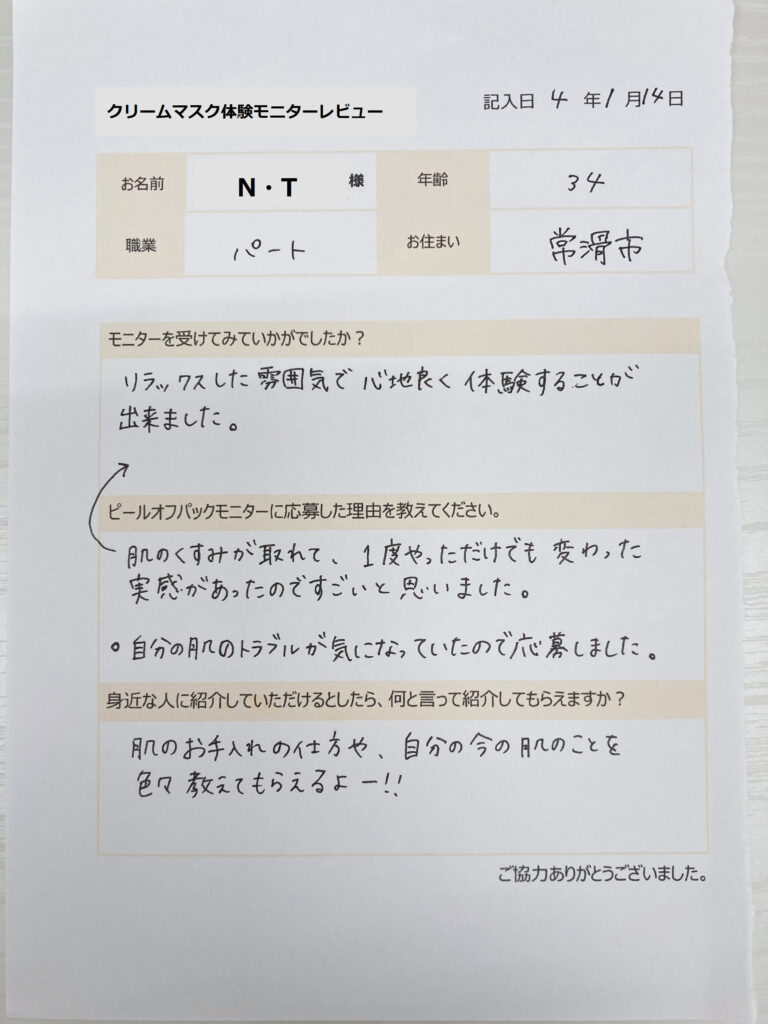 クリームマスク体験モニターレビュー
記入日 4 年 1 月 14 日
お名前 N・T 様 年齢 34
職業 パート お住まい 常滑市
モニターを受けてみていかがでしたか？
リラックスした雰囲気で心地良く体験することが
出来ました。
ピールオフパックモニターに応募した理由を教えてください。
肌のくすみが取れて、1度やっただけでも変わった
実感があったのですごいと思いました。
○自分の肌のトラブルが気になっていたので応募しました。
身近な人に紹介していただけるとしたら、何と言って紹介してもらえますか？
肌のお手入れの仕方や、自分の今の肌のことを
色々教えてもらえるよー!!
ご協力ありがとうございました。